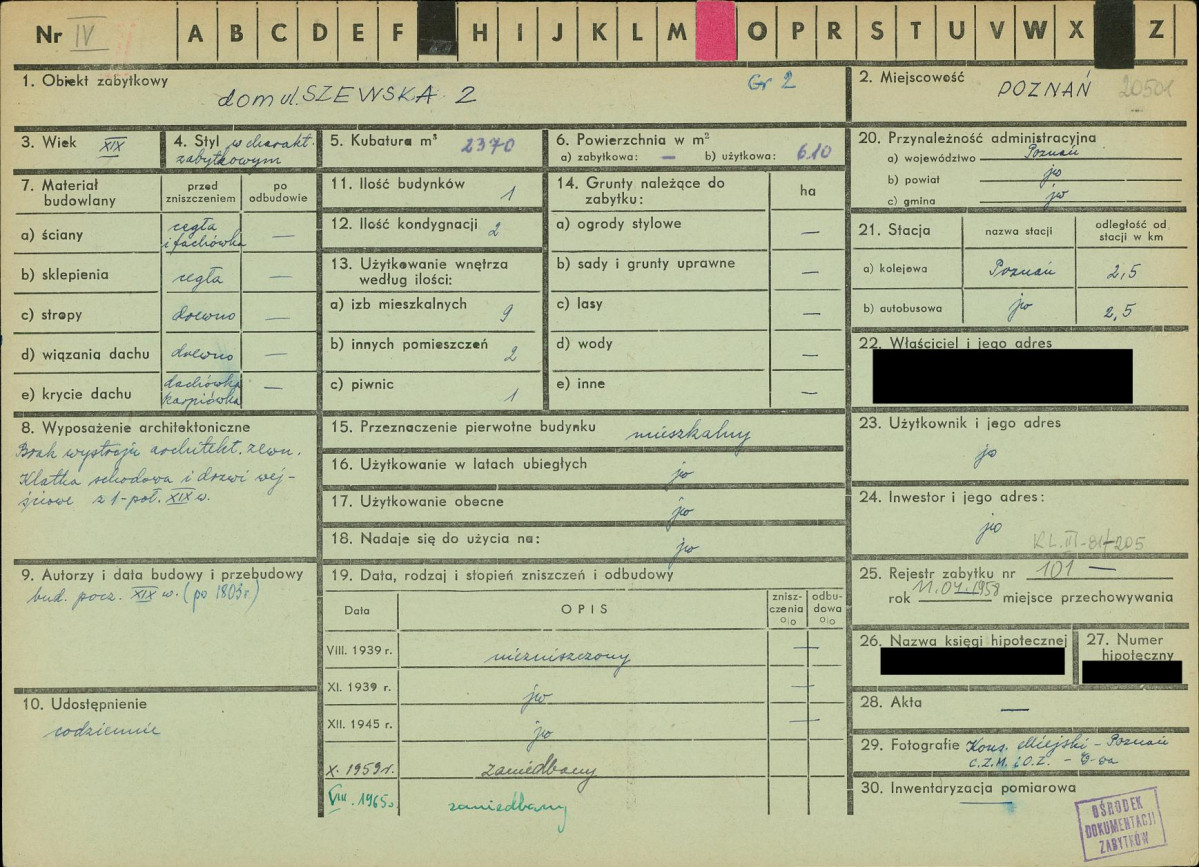 Nr IV A B C D E F H I J K L M O P R S T U V W X Z
1. Obiekt zabytkowy
dom ul. SZEWSKA 2
Gr 2
2. Miejscowość
POZNAŃ
20501
3. Wiek XIX
4. Styl w charakt.
zabytkowym
5. Kubatura m³ 2370
6. Powierzchnia w m²
a) zabytkowa: — b) użytkowa: 610
20. Przynależność administracyjna
a) województwo Poznań
b) powiat jw
c) gmina jw
7. Materiał
budowlany
przed
zniszczeniem
po
odbudowie
a) ściany
cegła
i fachówka
—
b) sklepienia cegła —
c) stropy drewno —
d) wiązania dachu drewno —
e) krycie dachu
dachówka
karpiówka
—
11. Ilość budynków 1
12. Ilość kondygnacji 2
13. Użytkowanie wnętrza
według ilości:
a) izb mieszkalnych 9
b) innych pomieszczeń 2
c) piwnic 1
14. Grunty należące do
zabytku:
ha
a) ogrody stylowe —
b) sady i grunty uprawne —
c) lasy —
d) wody —
e) inne —
21. Stacja
nazwa stacji
odległość od
stacji w km
a) kolejowa Poznań 2,5
b) autobusowa jw 2,5
22. Właściciel i jego adres
8. Wyposażenie architektoniczne
Brak wystroju architekt. zewn.
Klatka schodowa i drzwi wej-
ściowe z 1-poł. XIX w.
15. Przeznaczenie pierwotne budynku mieszkalny
16. Użytkowanie w latach ubiegłych jw
17. Użytkowanie obecne jw
18. Nadaje się do użycia na: jw
23. Użytkownik i jego adres
jw
24. Inwestor i jego adres:
jw
KL.III-81-205
9. Autorzy i data budowy i przebudowy
bud. pocz. XIX w. (po 1803 r.)
19. Data, rodzaj i stopień zniszczeń i odbudowy
Data
OPIS
znisz-
czenia
%
odbu-
dowa
%
VIII. 1939 r. niezniszczony —
XI. 1939 r. jw —
XII. 1945 r. jw —
X. 1959 r. zaniedbany
VIII. 1965 r. zaniedbany
25. Rejestr zabytku nr 101 —
rok 11.07.1958 miejsce przechowywania
26. Nazwa księgi hipotecznej
27. Numer
hipoteczny
10. Udostępnienie
codziennie
28. Akta —
29. Fotografie Kons. Miejski - Poznań
C.Z.M. i O.Z. - W-wa
30. Inwentaryzacja pomiarowa
—
OŚRODEK
DOKUMENTACJI
ZABYTKÓW